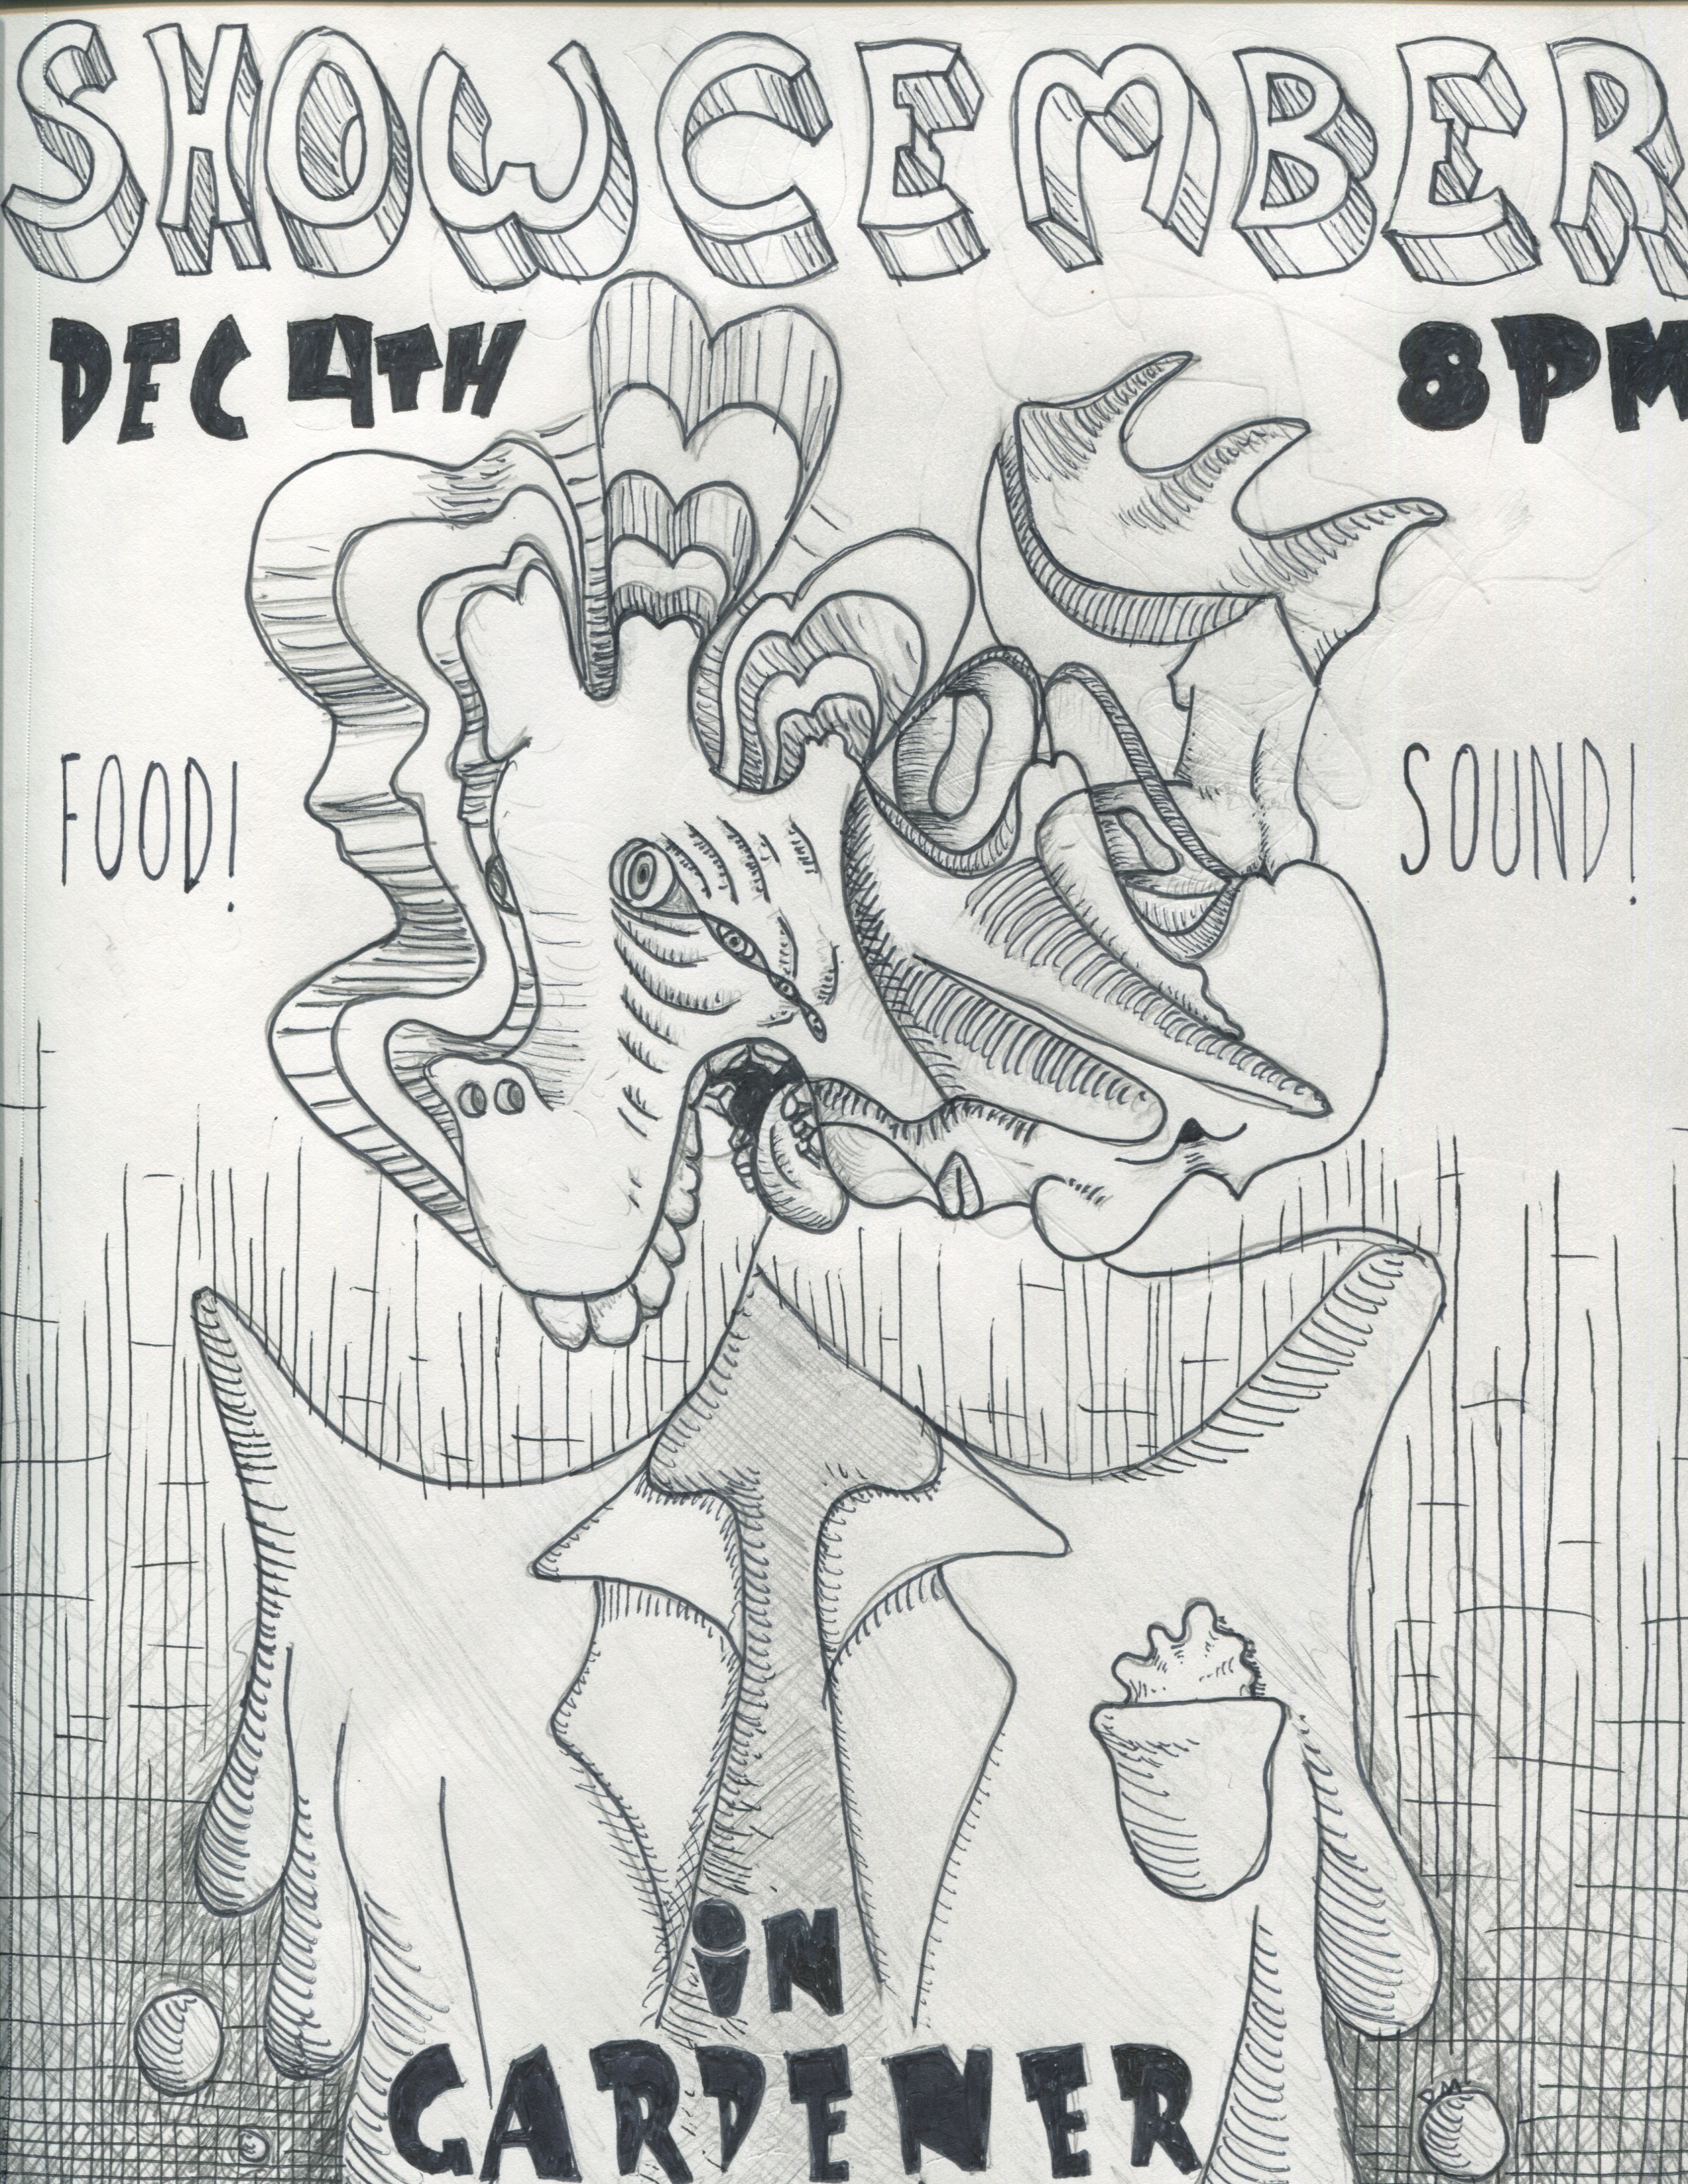 SHOWCEMBER
DEC 4TH
8PM
FOOD!
SOUND!
iN
GARDENER